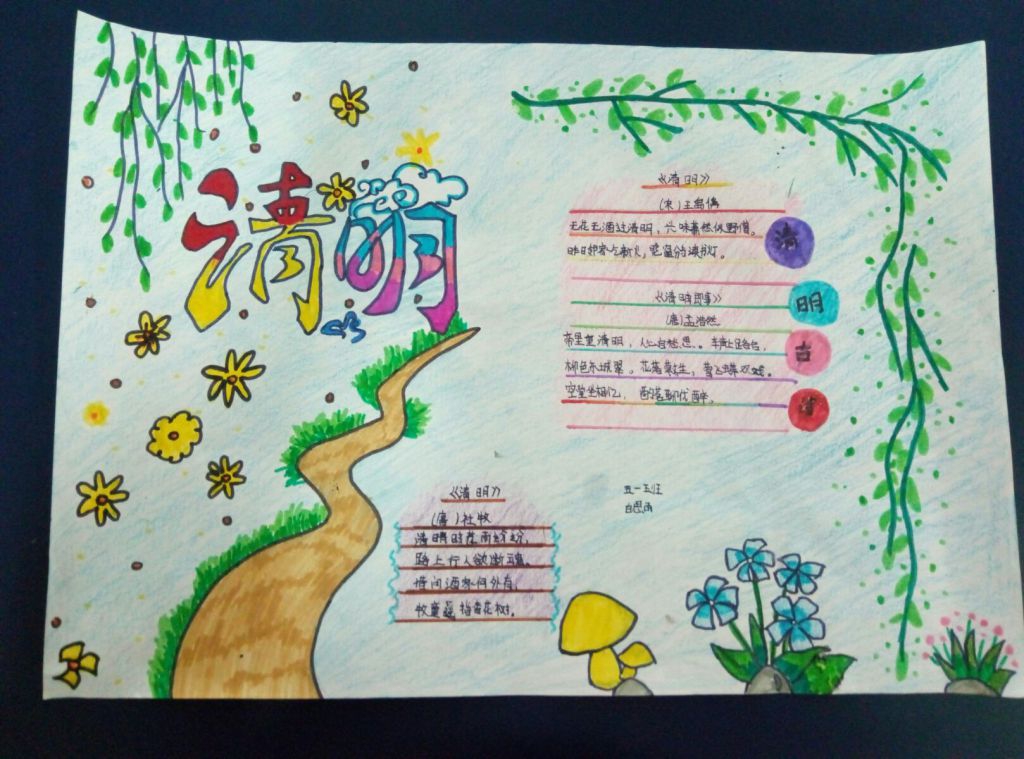 清明
《清明》
(宋)王禹偁
无花无酒过清明,兴味萧然似野僧。
昨日邻家乞新火,晓窗分读书灯。
清
明
古
《清明即事》
(唐)孟浩然
帝里重清明,人心自愁思。车声上路合,
柳色东城翠。花落草齐生,莺飞蝶双戏。
空堂坐相忆,酌茗聊代醉。
《清明》
(唐)杜牧
清明时节雨纷纷,
路上行人欲断魂。
借问酒家何处有,
牧童遥指杏花树。
五一五班
白思雨